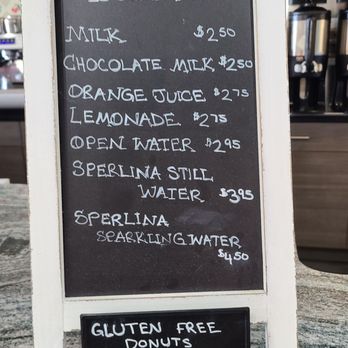 MILK $2.50
CHOCOLATE MILK $2.50
ORANGE JUICE $2.75
LEMONADE $2.75
OPEN WATER $2.95
SPERLINA STILL
WATER $3.95
SPERLINA
SPARKLING WATER
$4.50
GLUTEN FREE
DONUTS